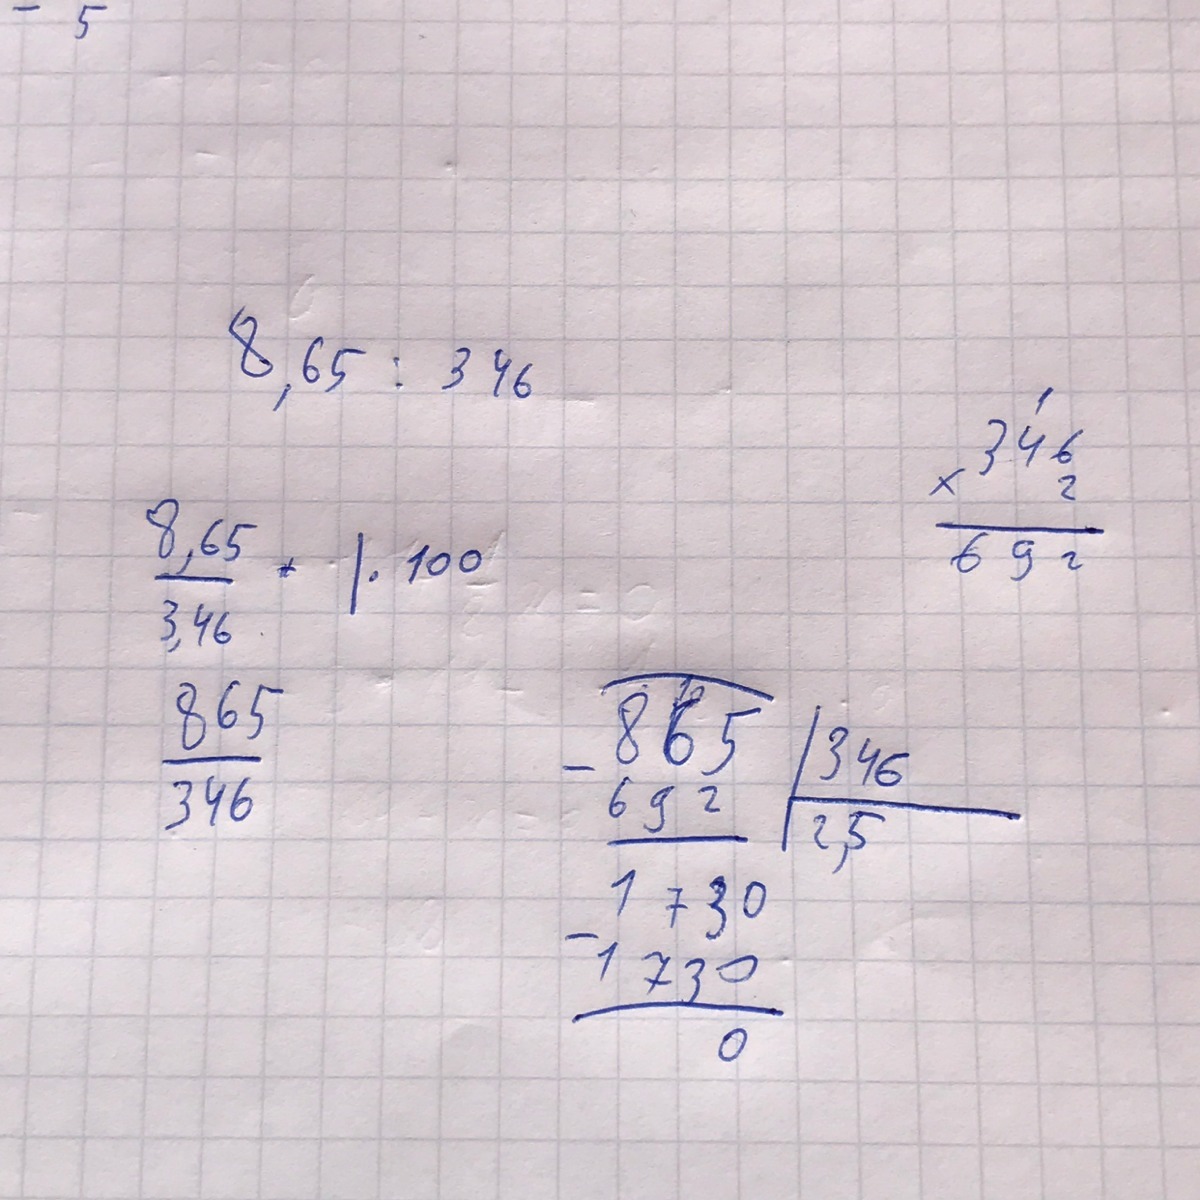 - 5
8,65 : 346
8,65
3,46
|· 100
865
346
1
346
× 2
692
865 | 346
- 692
2,5
1730
- 1730
0